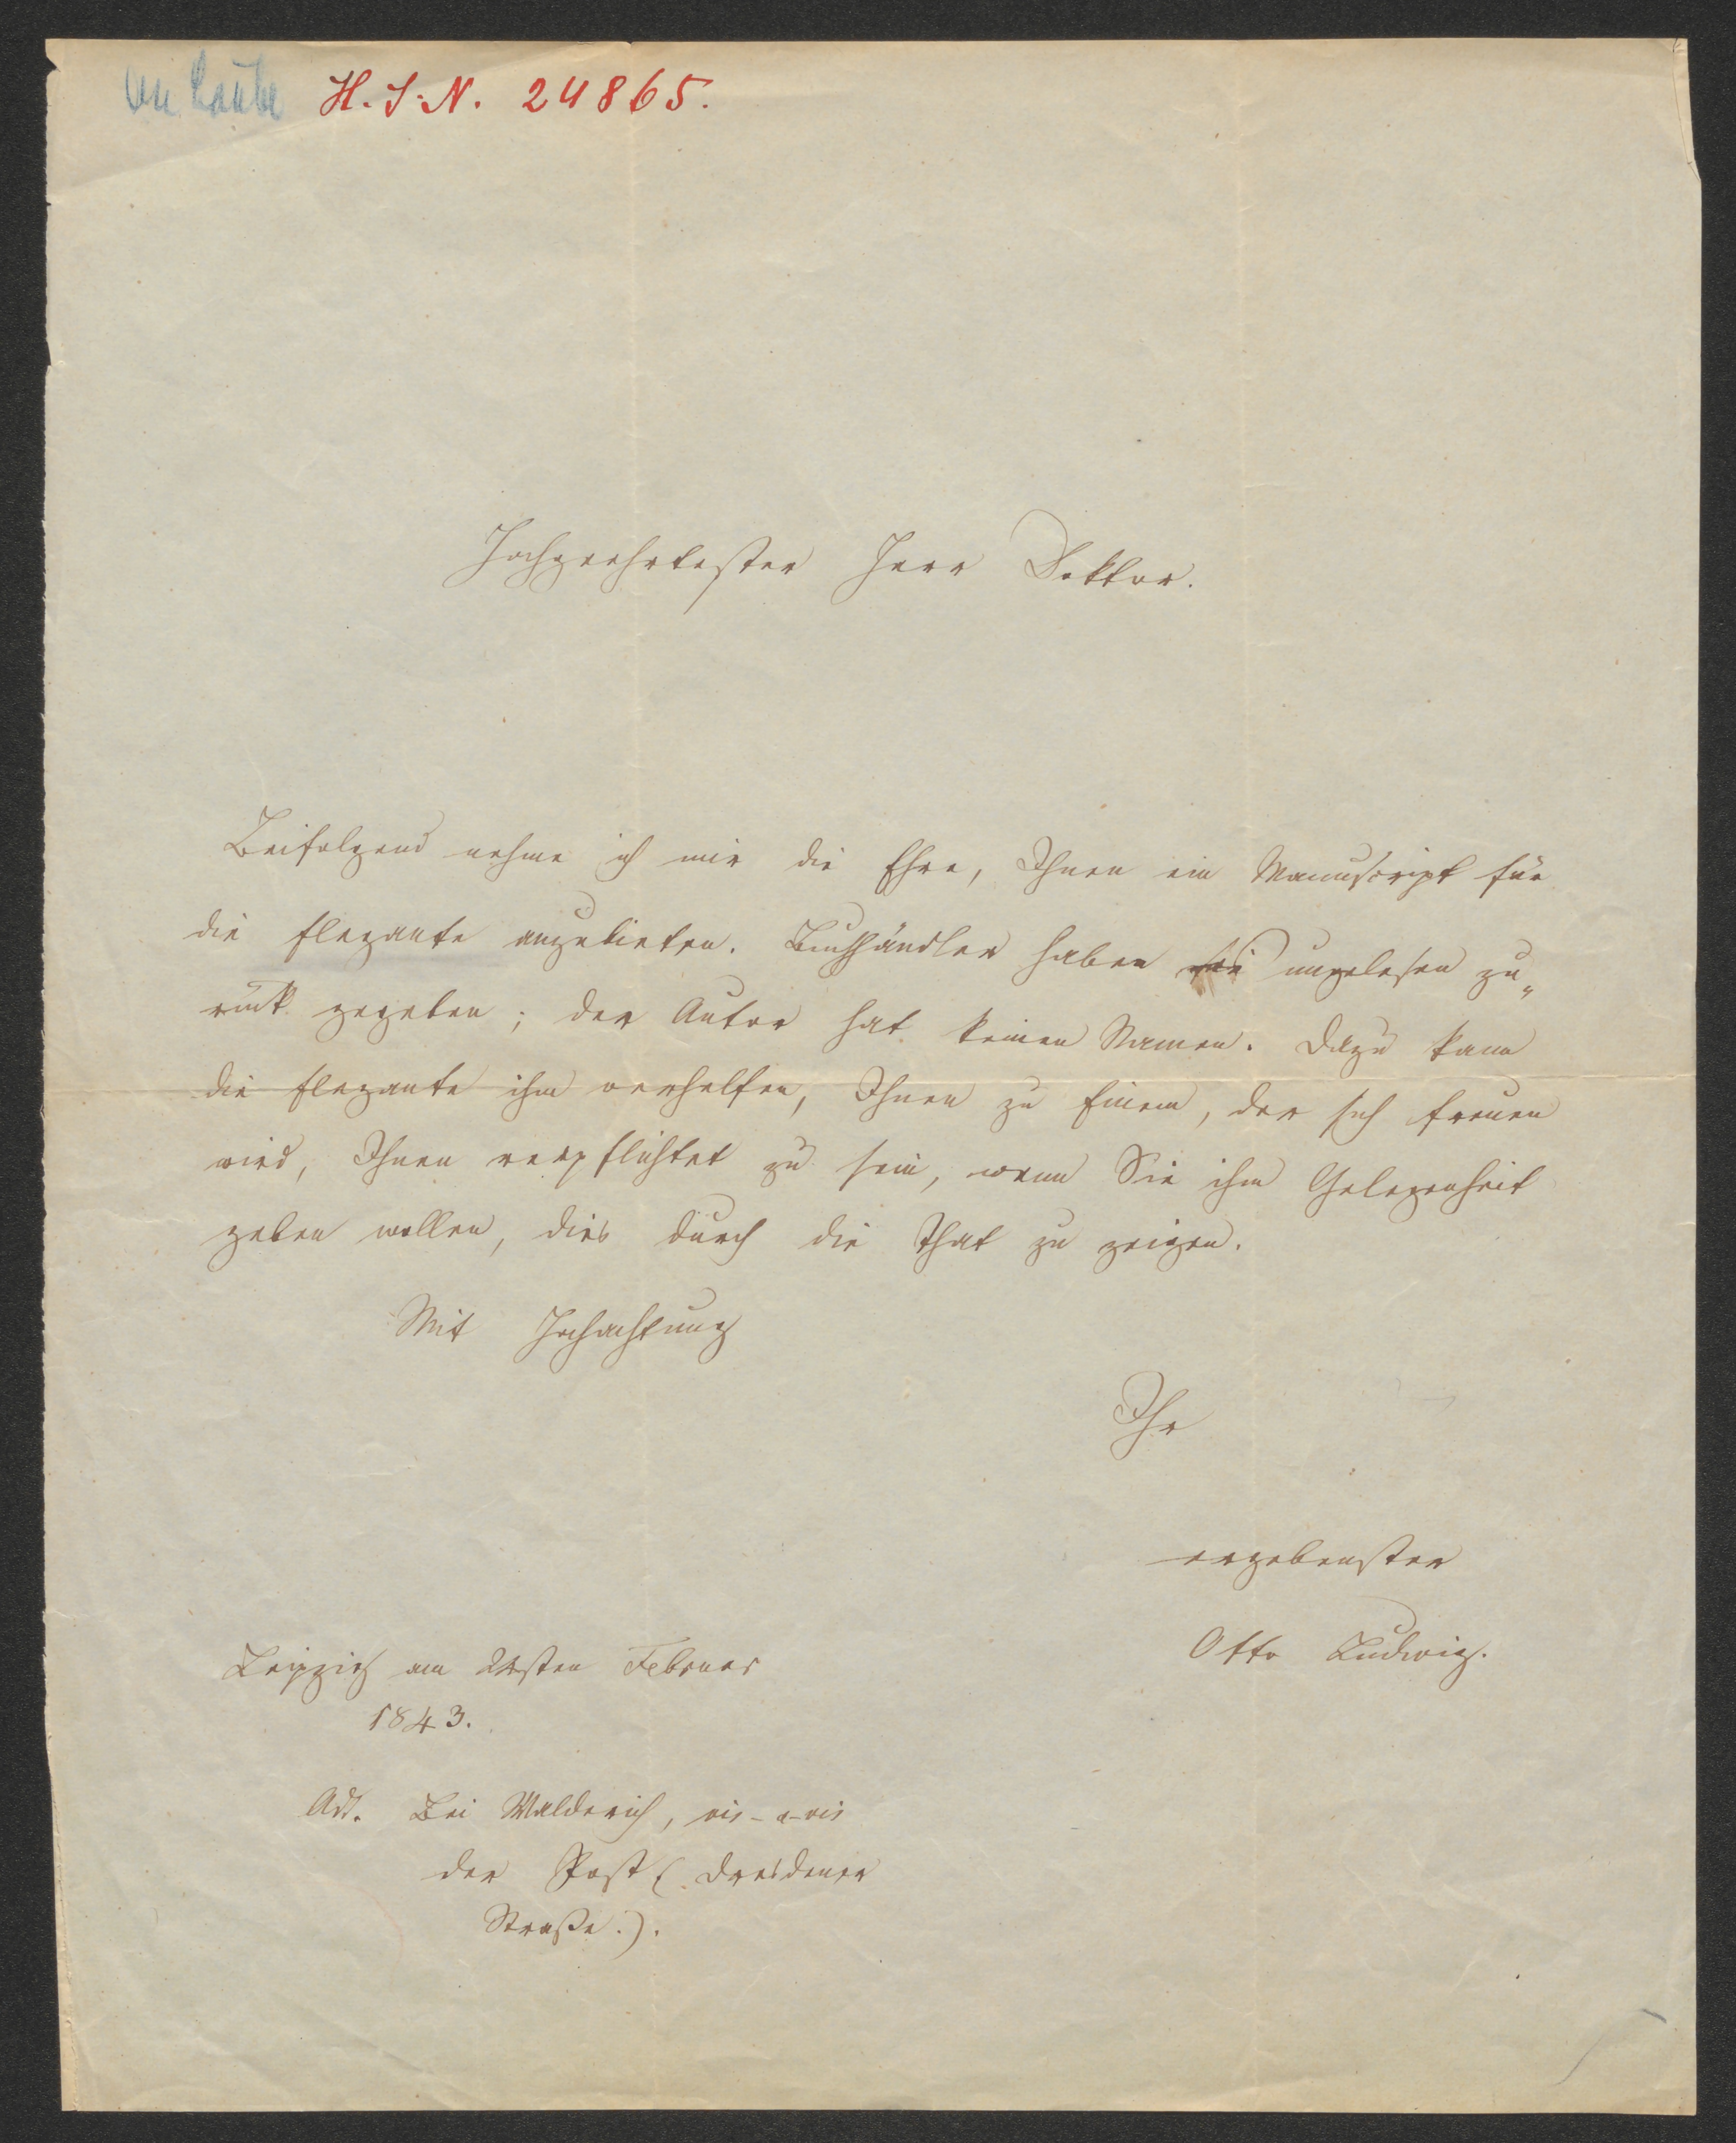 An Laube H. I. N. 24865.
Hochgeehrtester Herr Doktor.
Beifolgend nehme ich mir die Ehre, Ihnen ein Manuscript für
die Elegante anzubieten. Buchhändler haben ungelesen zu„
rück gegeben; der Autor hat keinen Namen. Dazu kann
die Elegante ihm verhelfen, Ihnen zu Einem, der sich freuen
wird, Ihnen verpflichtet zu sein, wenn Sie ihm Gelegenheit
geben wollen, dies durch die That zu zeigen.
Mit Hochachtung
Ihr
ergebenster
Otto Ludwig.
Leipzig am Februar
1843.
Adr. Bei Walderich, vis-a-vis
der Post (Dresdener
Straße.).